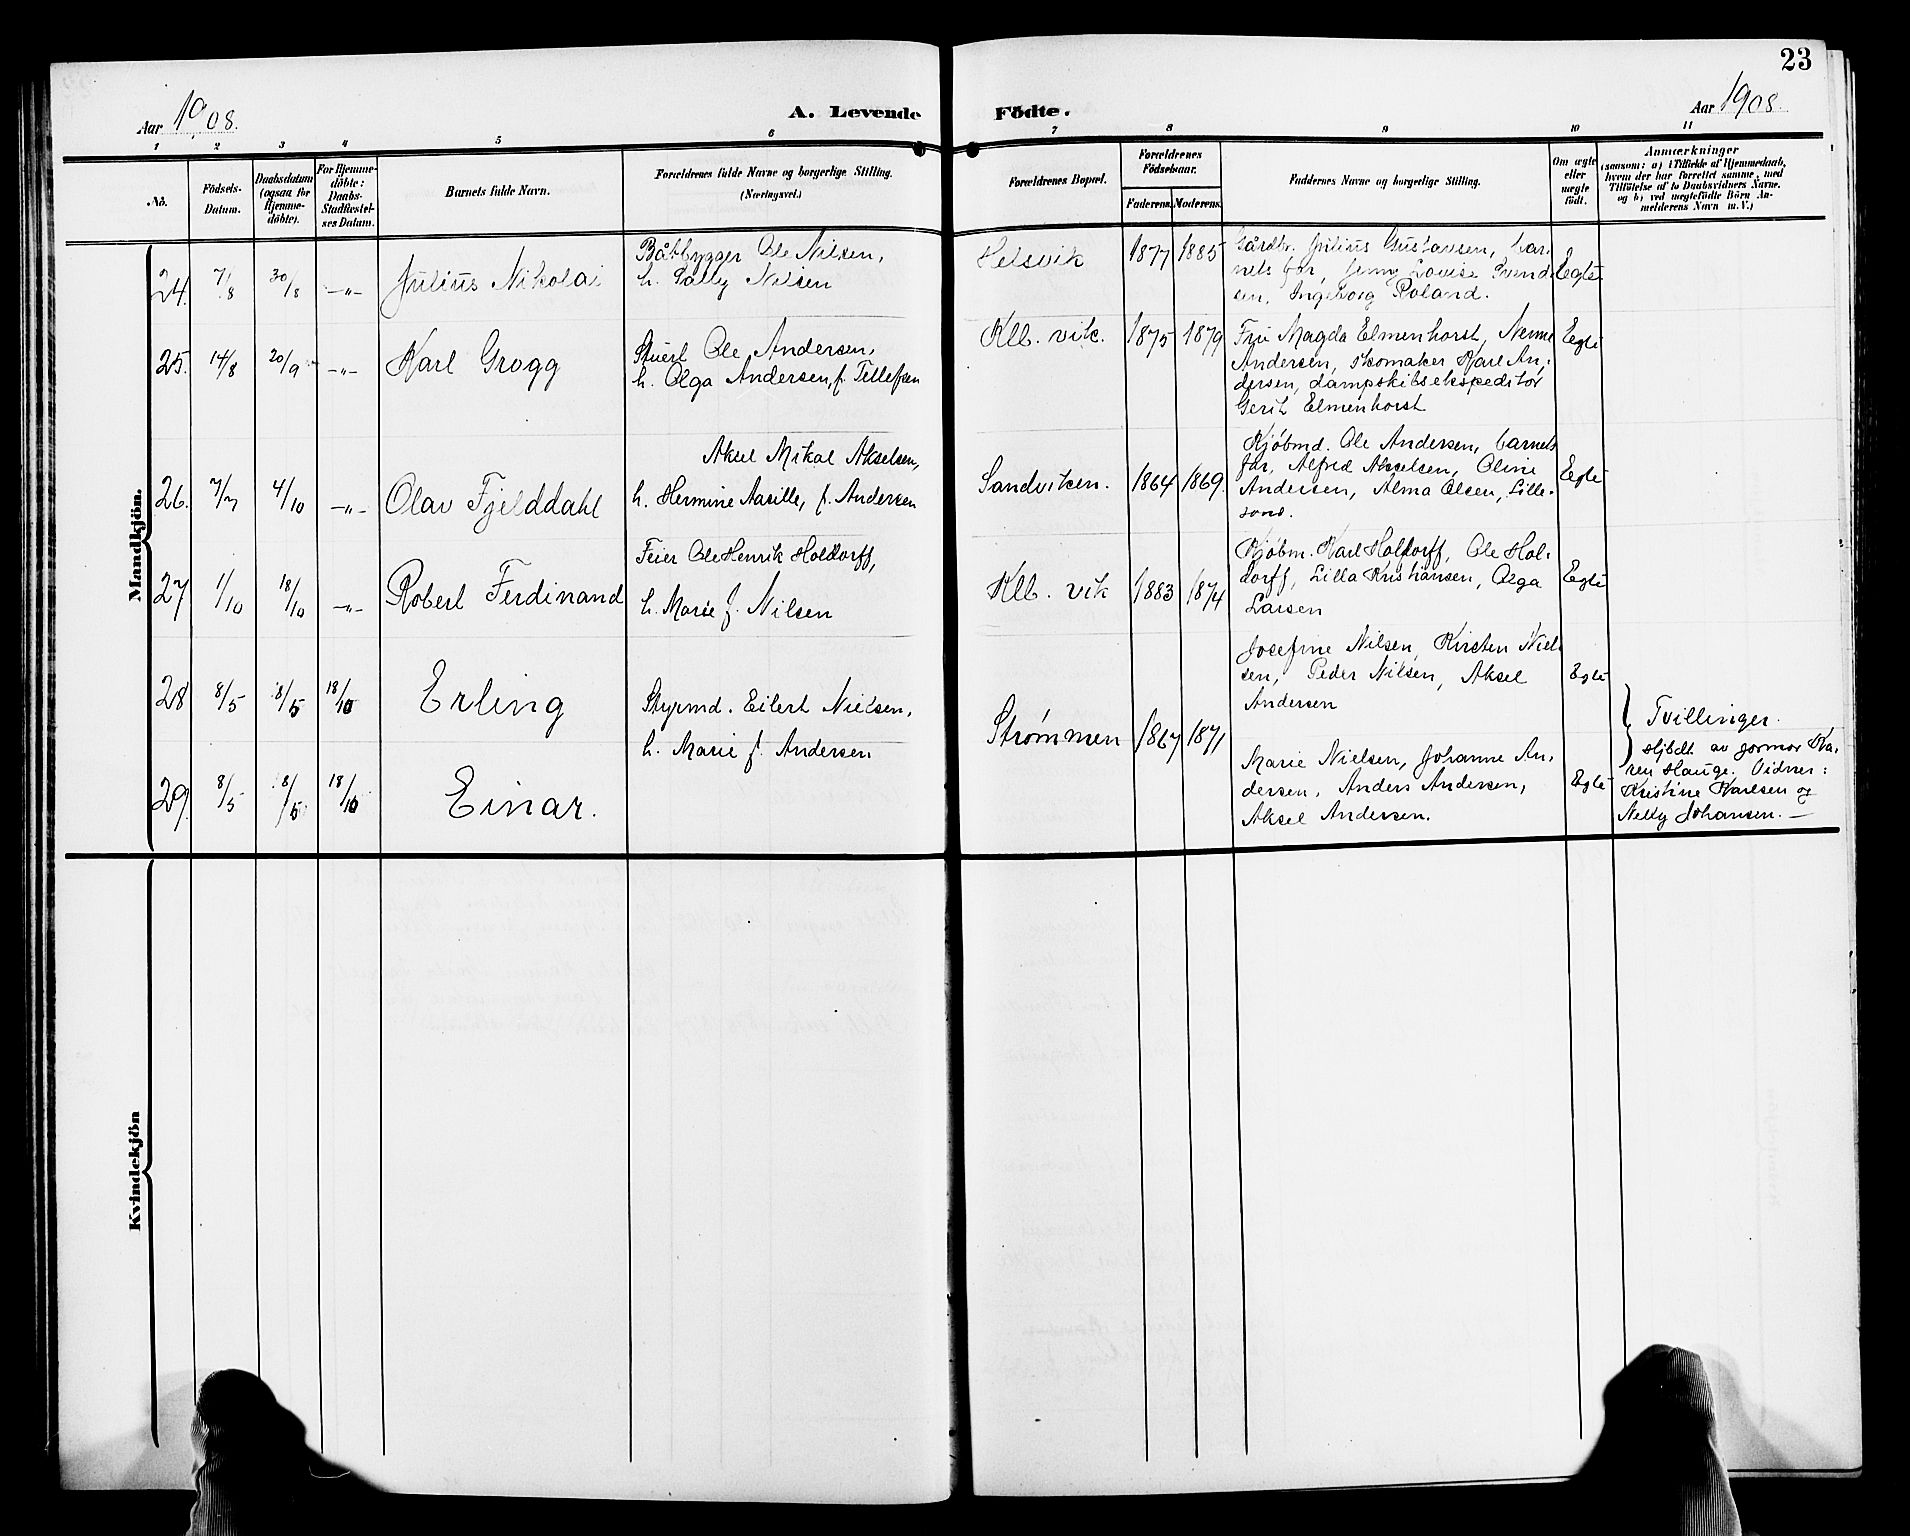 23
Aar 1908.
A. Levende
Födte.
Aar 1908.
1 2 3 4 5 6 7 8 9 10 11
No.
Födsels-
Datum.
Daabsdatum
(ogsaa for
Hjemme-
döbte).
For Hjemme-
döbte:
Daabs-
Stadfæstel-
ses Datum.
Barnets fulde Navn.
Forældrenes fulde Navne og borgerlige Stilling.
(Næringsvei.)
Forældrenes Bopæl.
Forældrenes
Födselsaar.
Faderens. Moderens.
Faddernes Navne og borgerlige Stilling.
Om ægte
eller
uægte
födt.
Anmærkninger
(saasom: a) i Tilfælde af Hjemmedaab,
hvem der har forrettet samme, med
Tilföielse af to Daabsvidners Navne,
og b) ved uægtefödte Börn An-
melderens Navn m. V.)
Mandkjön.
24. 7/8 30/8 —„— Julius Nikolai
Båtbygger Ole Nilsen,
h. Sally Nilsen
1877 1885
Gårdbr. Julius Gustavsen, bar-
nets far, Jenny Lovise
sen, Ingeborg Roland.
Egte
25. 14/8 20/9 —„— Karl Grogg
Stuert Ole Andersen,
h. Olga Andersen, f. Tellefsen
Kllb. vik. 1875 1879
Fru Magda Elmenhorst,
Andersen, skomaker Karl An-
dersen, dampskibsekspeditør
Gerit Elmenhorst
Egte
26. 7/7 4/10 —„— Olav Fjelddahl
Aksel Mikal Akselsen,
h. Hermine Aasille, f. Andersen
Sandviken. 1864 1869.
Kjøbmd. Ole Andersen, barnets
far, Alfred Akselsen, Oline
Andersen, Alma Olsen, Lille-
sand.
Egte
27 1/10 18/10 —„— Robert Ferdinand
Feier Ole Henrik Holdorff,
h. Marie f. Nilsen
Kllb. vik 1883 1874
Kjøbm. Karl Holdorff, Ole Hol-
dorff, Lilla Kristiansen, Olga
Larsen
Egte
28 8/5 8/5 18/10 Erling
Styrmd. Eilert Nielsen,
h. Marie f. Andersen
Strømmen 1867 1871
Josefine Nilsen, Kirsten Niel-
sen, Peder Nilsen, Aksel
Andersen
Egte
29. 8/5 8/5 18/10 Einar.
Marie Nielsen, Johanne An-
dersen, Anders Andersen,
Aksel Andersen.
Egte
Tvillinger.
Hjbdt. av jormor Ka-
ren Hauge. Vidner:
Kristine Karlsen og
Nelly Johansen. —
Kvindekjön